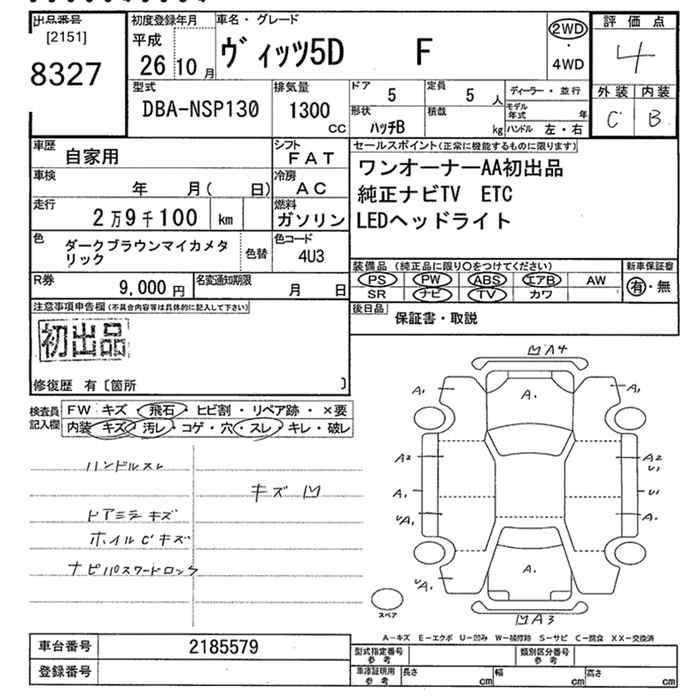 出品番号
[2151]
8327
初度登録年月
平成
26 10 月
車名・グレード
ヴィッツ5D F
2WD
・
4WD
評価点
4
外装 内装
C B
型式
DBA-NSP130
排気量
1300
CC
ドア
5
定員
5 人
形状
ハッチB
積載
kg
ディーラー・並行
モデル年式 年
ハンドル 左・右
車歴
自家用
シフト
FAT
車検
年 月( 日)
冷房
AC
走行
2万9千100 km
燃料
ガソリン
色
ダークブラウンマイカメタリック
色替
色コード
4U3
R券
9,000 円
名変通知期限
月 日
セールスポイント(正常に機能するものに限ります)
ワンオーナーAA初出品
純正ナビTV ETC
LEDヘッドライト
装備品(純正品に限り○をつけてください)
PS PW ABS エアB AW
SR ナビ TV カワ
新車保証書
有・無
後日品
保証書・取説
注意事項申告欄(不具合内容等は具体的に記入して下さい)
初出品
修復歴 有〔箇所 〕
検査員記入欄
FW キズ・飛石・ヒビ割・リペア跡・×要
内装 キズ・汚レ・コゲ・穴・スレ・キレ・破レ
ハンドルスレ
キズ 凹
ドアミラーキズ
ホイルCキズ
ナビパスワードロック
凹A4
A1 A1
A1
A2 A2
U1
A1 U1
UA1 A1
A1
UA1
凹A3
スペア
A-キズ E-エクボ U-凹み W-補修跡 S-サビ C-腐食 XX-交換済
車台番号
2185579
登録番号
型式指定番号
参考
類別区分番号
参考
車庫証明用
参考
長さ cm
幅 cm
高さ cm